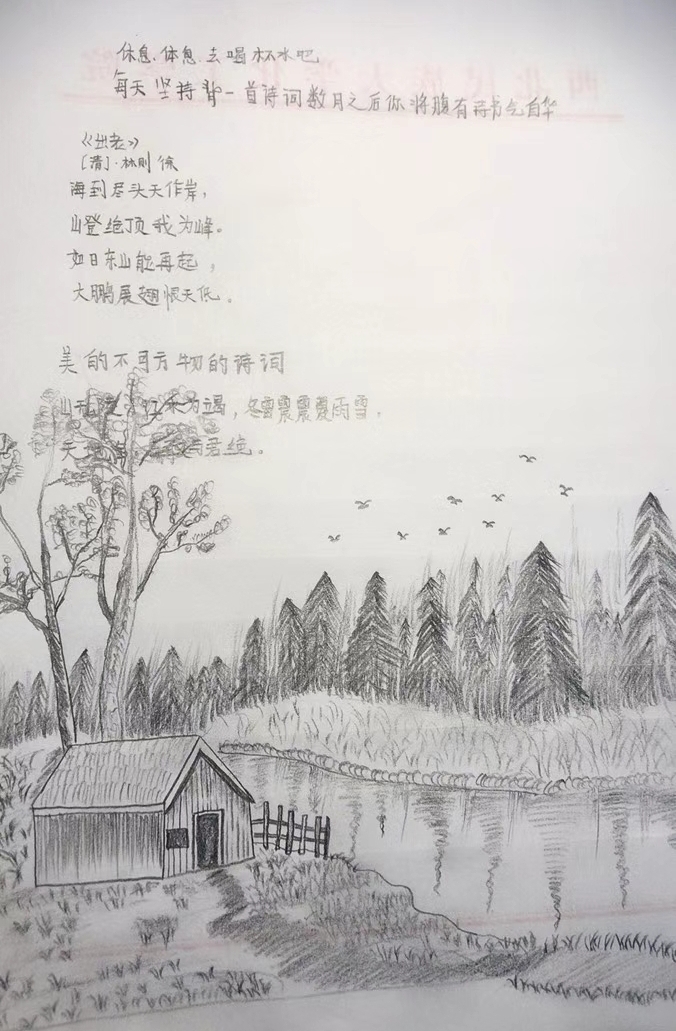 休息.休息.去喝杯水吧
每天坚持背一首诗词数月之后你将腹有诗书气自华
《出老》
[清].林则徐
海到尽头天作岸，
山登绝顶我为峰。
如日东山能再起，
大鹏展翅恨天低。
美的不可方物的诗词
山无陵,江水为竭，冬雷震震夏雨雪，
天 与君绝。